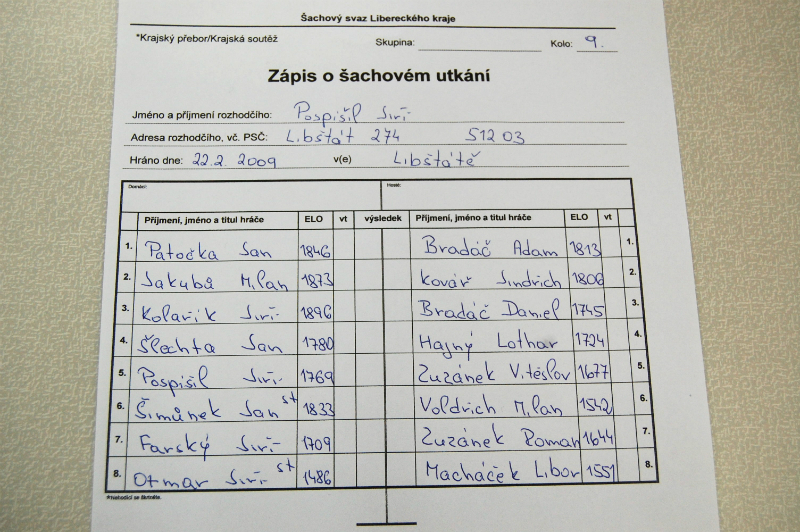 Šachový svaz Libereckého kraje
*Krajský přebor/Krajská soutěž Skupina: Kolo: 9.
Zápis o šachovém utkání
Jméno a příjmení rozhodčího: Pospíšil Jiří
Adresa rozhodčího, vč. PSČ: Libštát 274 512 03
Hráno dne: 22.2. 2009 v(e) Libštátě
Domácí: Hosté:
Příjmení, jméno a titul hráče ELO vt výsledek Příjmení, jméno a titul hráče ELO vt
1. Patočka Jan 1846 Bradáč Adam 1813 1.
2. Jakubů Milan 1873 Kovář Jindrich 1806 2.
3. Kolařík Jiří 1896 Bradáč Daniel 1745 3.
4. Šlechta Jan 1780 Hajný Lothar 1724 4.
5. Pospíšil Jiří 1769 Zuzánek Vítěslov 1677 5.
6. Šimůnek Jan st 1833 Voldrich Milan 1542 6.
7. Farský Jiří 1709 Zuzánek Roman 1644 7.
8. Otmar Jiří st 1486 Macháček Libor 1551 8.
*Nehodící se škrtněte.